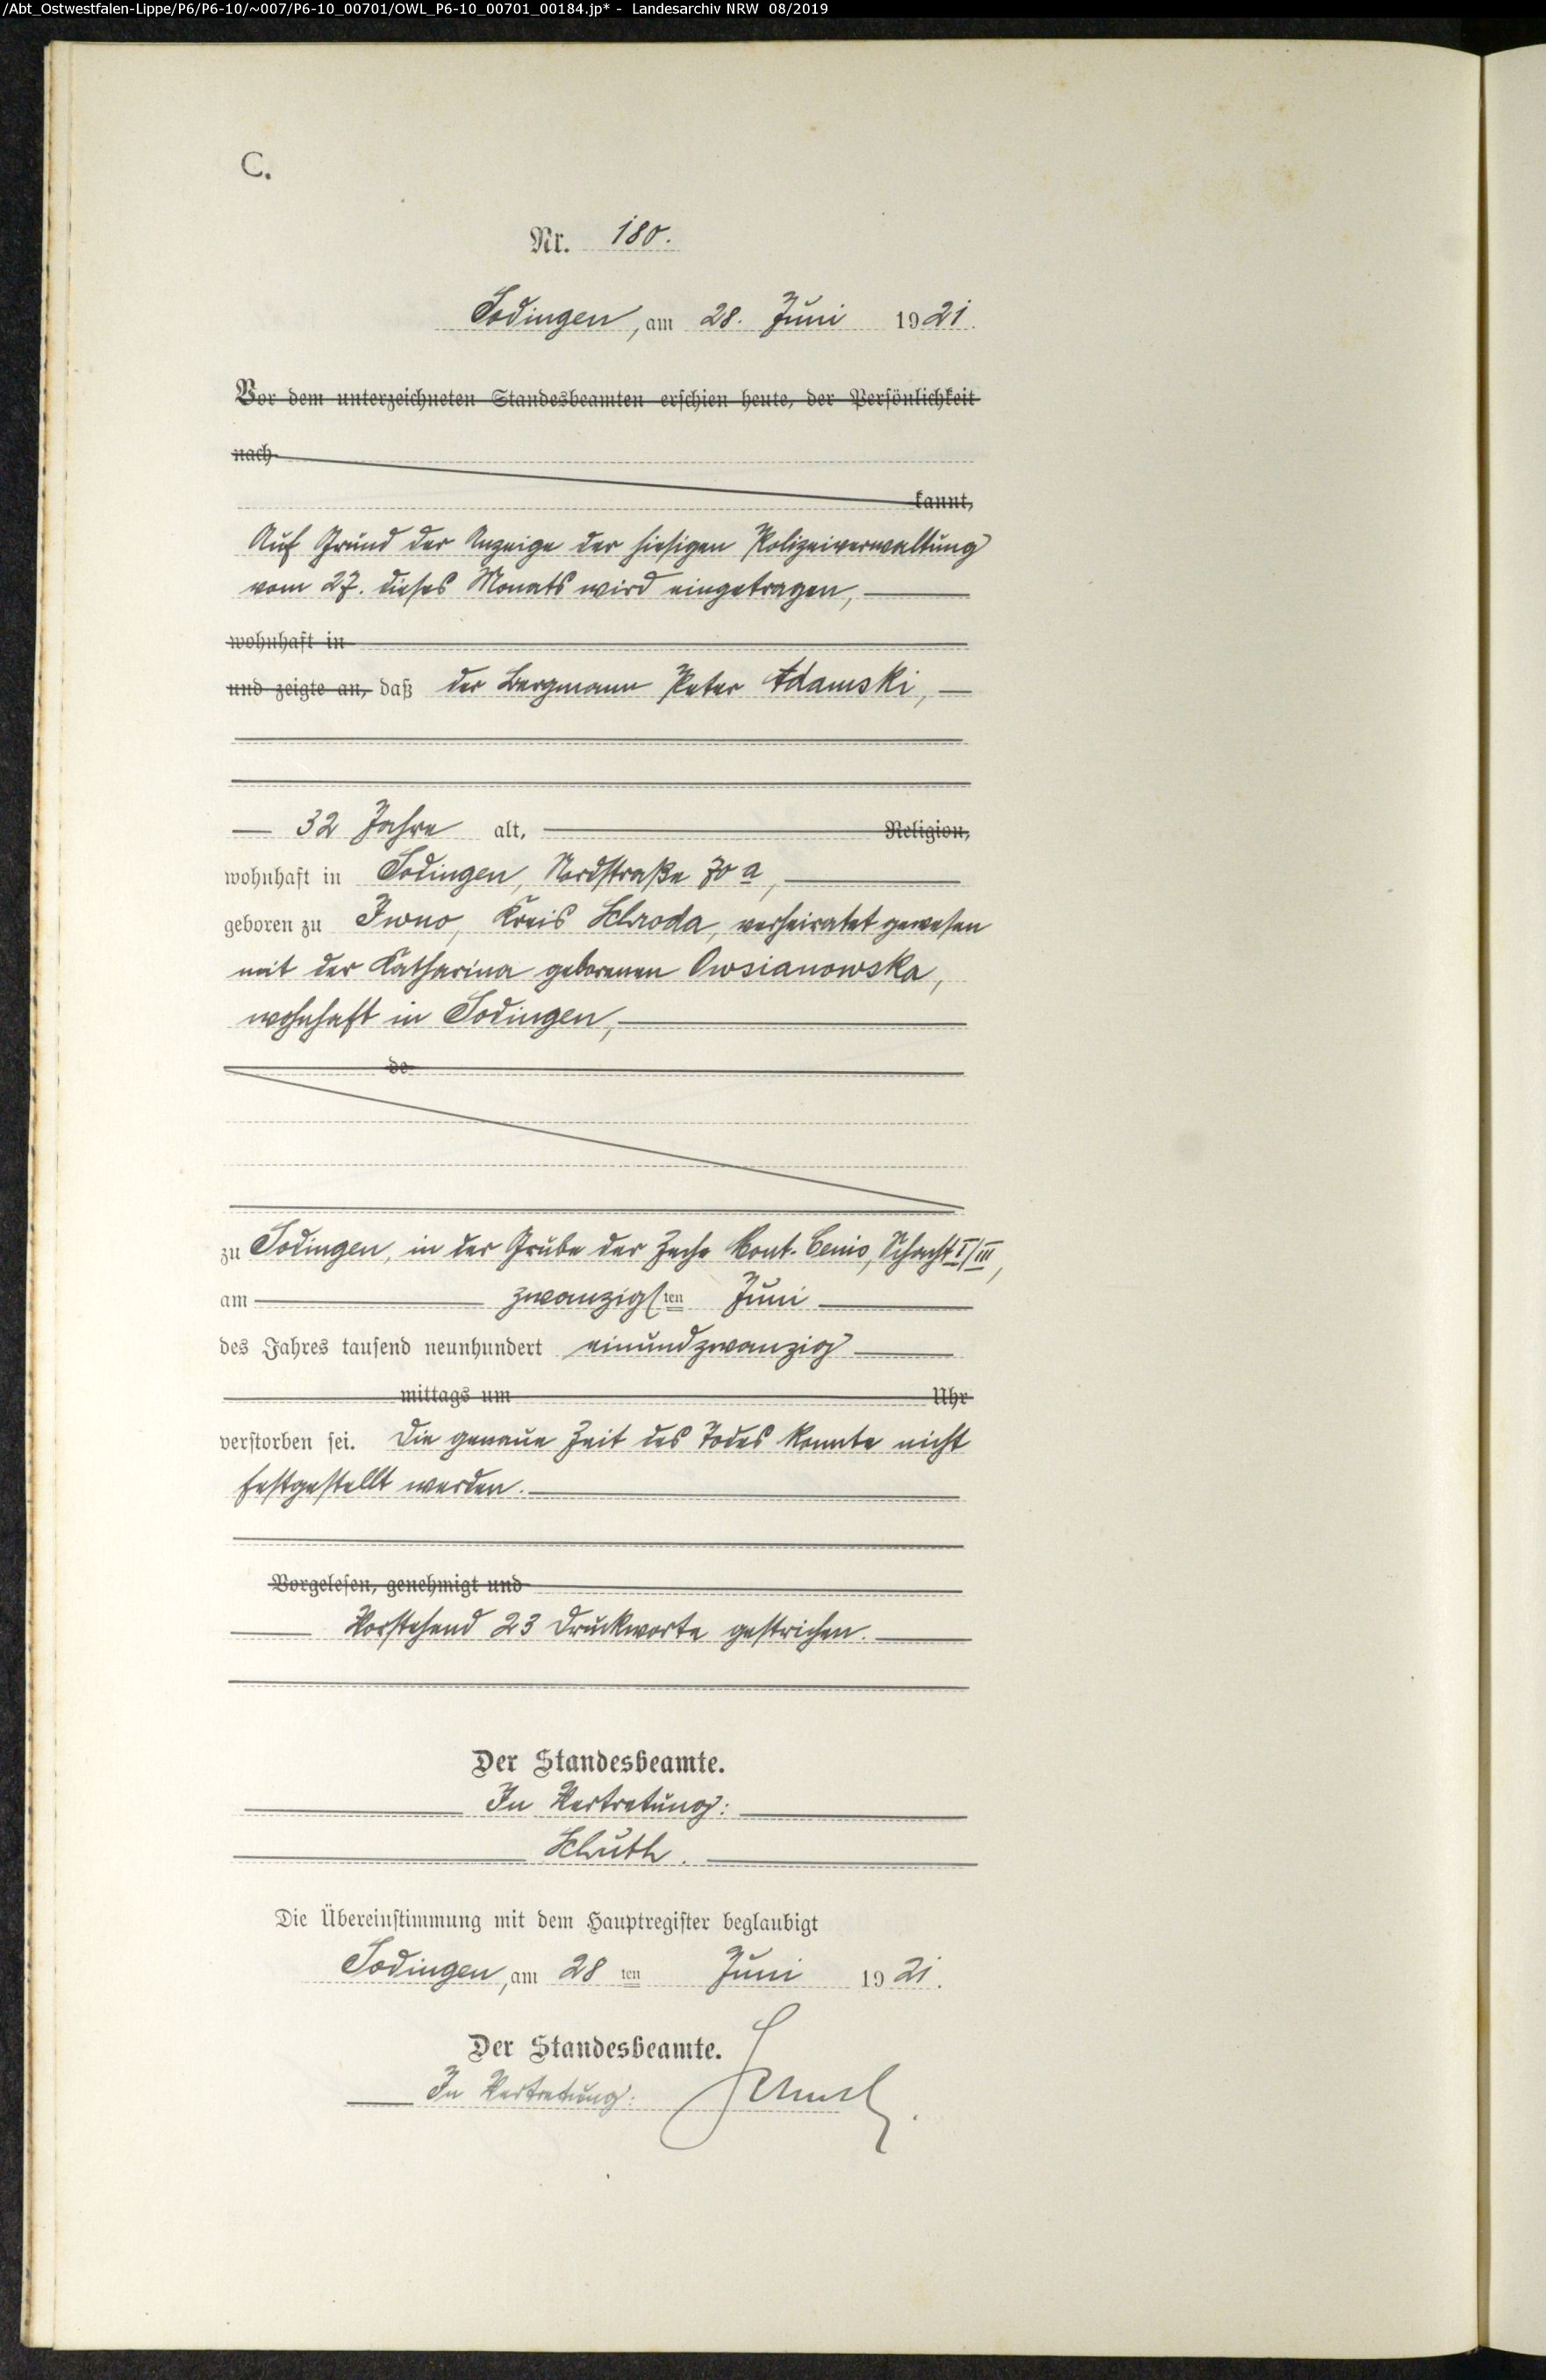 /Abt_Ostwestfalen-Lippe/P6/P6-10/~007/P6-10_00701/OWL_P6-10_00701_00184.jp* - Landesarchiv NRW 08/2019
C.
Nr. 180.
Sodingen, am 28. Juni 1921.
Vor dem unterzeichneten Standesbeamten erschien heute, der Persönlichkeit
nach
kannt,
Auf Grund der Anzeige der hiesigen Polizeiverwaltung
vom 27. dieses Monats wird eingetragen,
wohnhaft in
und zeigte an, daß der Bergmann Peter Adamski,
32 Jahre alt, Religion,
wohnhaft in Sodingen, Nordstraße 70 a,
geboren zu Iwno, Kreis Schroda, verheiratet gewesen
mit der Katharina geborenen Owsianowska,
wohnhaft in Sodingen,
de
zu Sodingen, in der Grube der Zeche Mont-Cenis, Schacht I/III,
am zwanzigsten Juni
des Jahres tausend neunhundert einundzwanzig
mittags um Uhr
verstorben sei. Die genaue Zeit des Todes konnte nicht
festgestellt werden.
Vorgelesen, genehmigt und
Vorstehend 23 Druckworte gestrichen.
Der Standesbeamte.
In Vertretung:
Schuth.
Die Übereinstimmung mit dem Hauptregister beglaubigt
Sodingen, am 28 ten Juni 1921.
Der Standesbeamte.
In Vertretung: